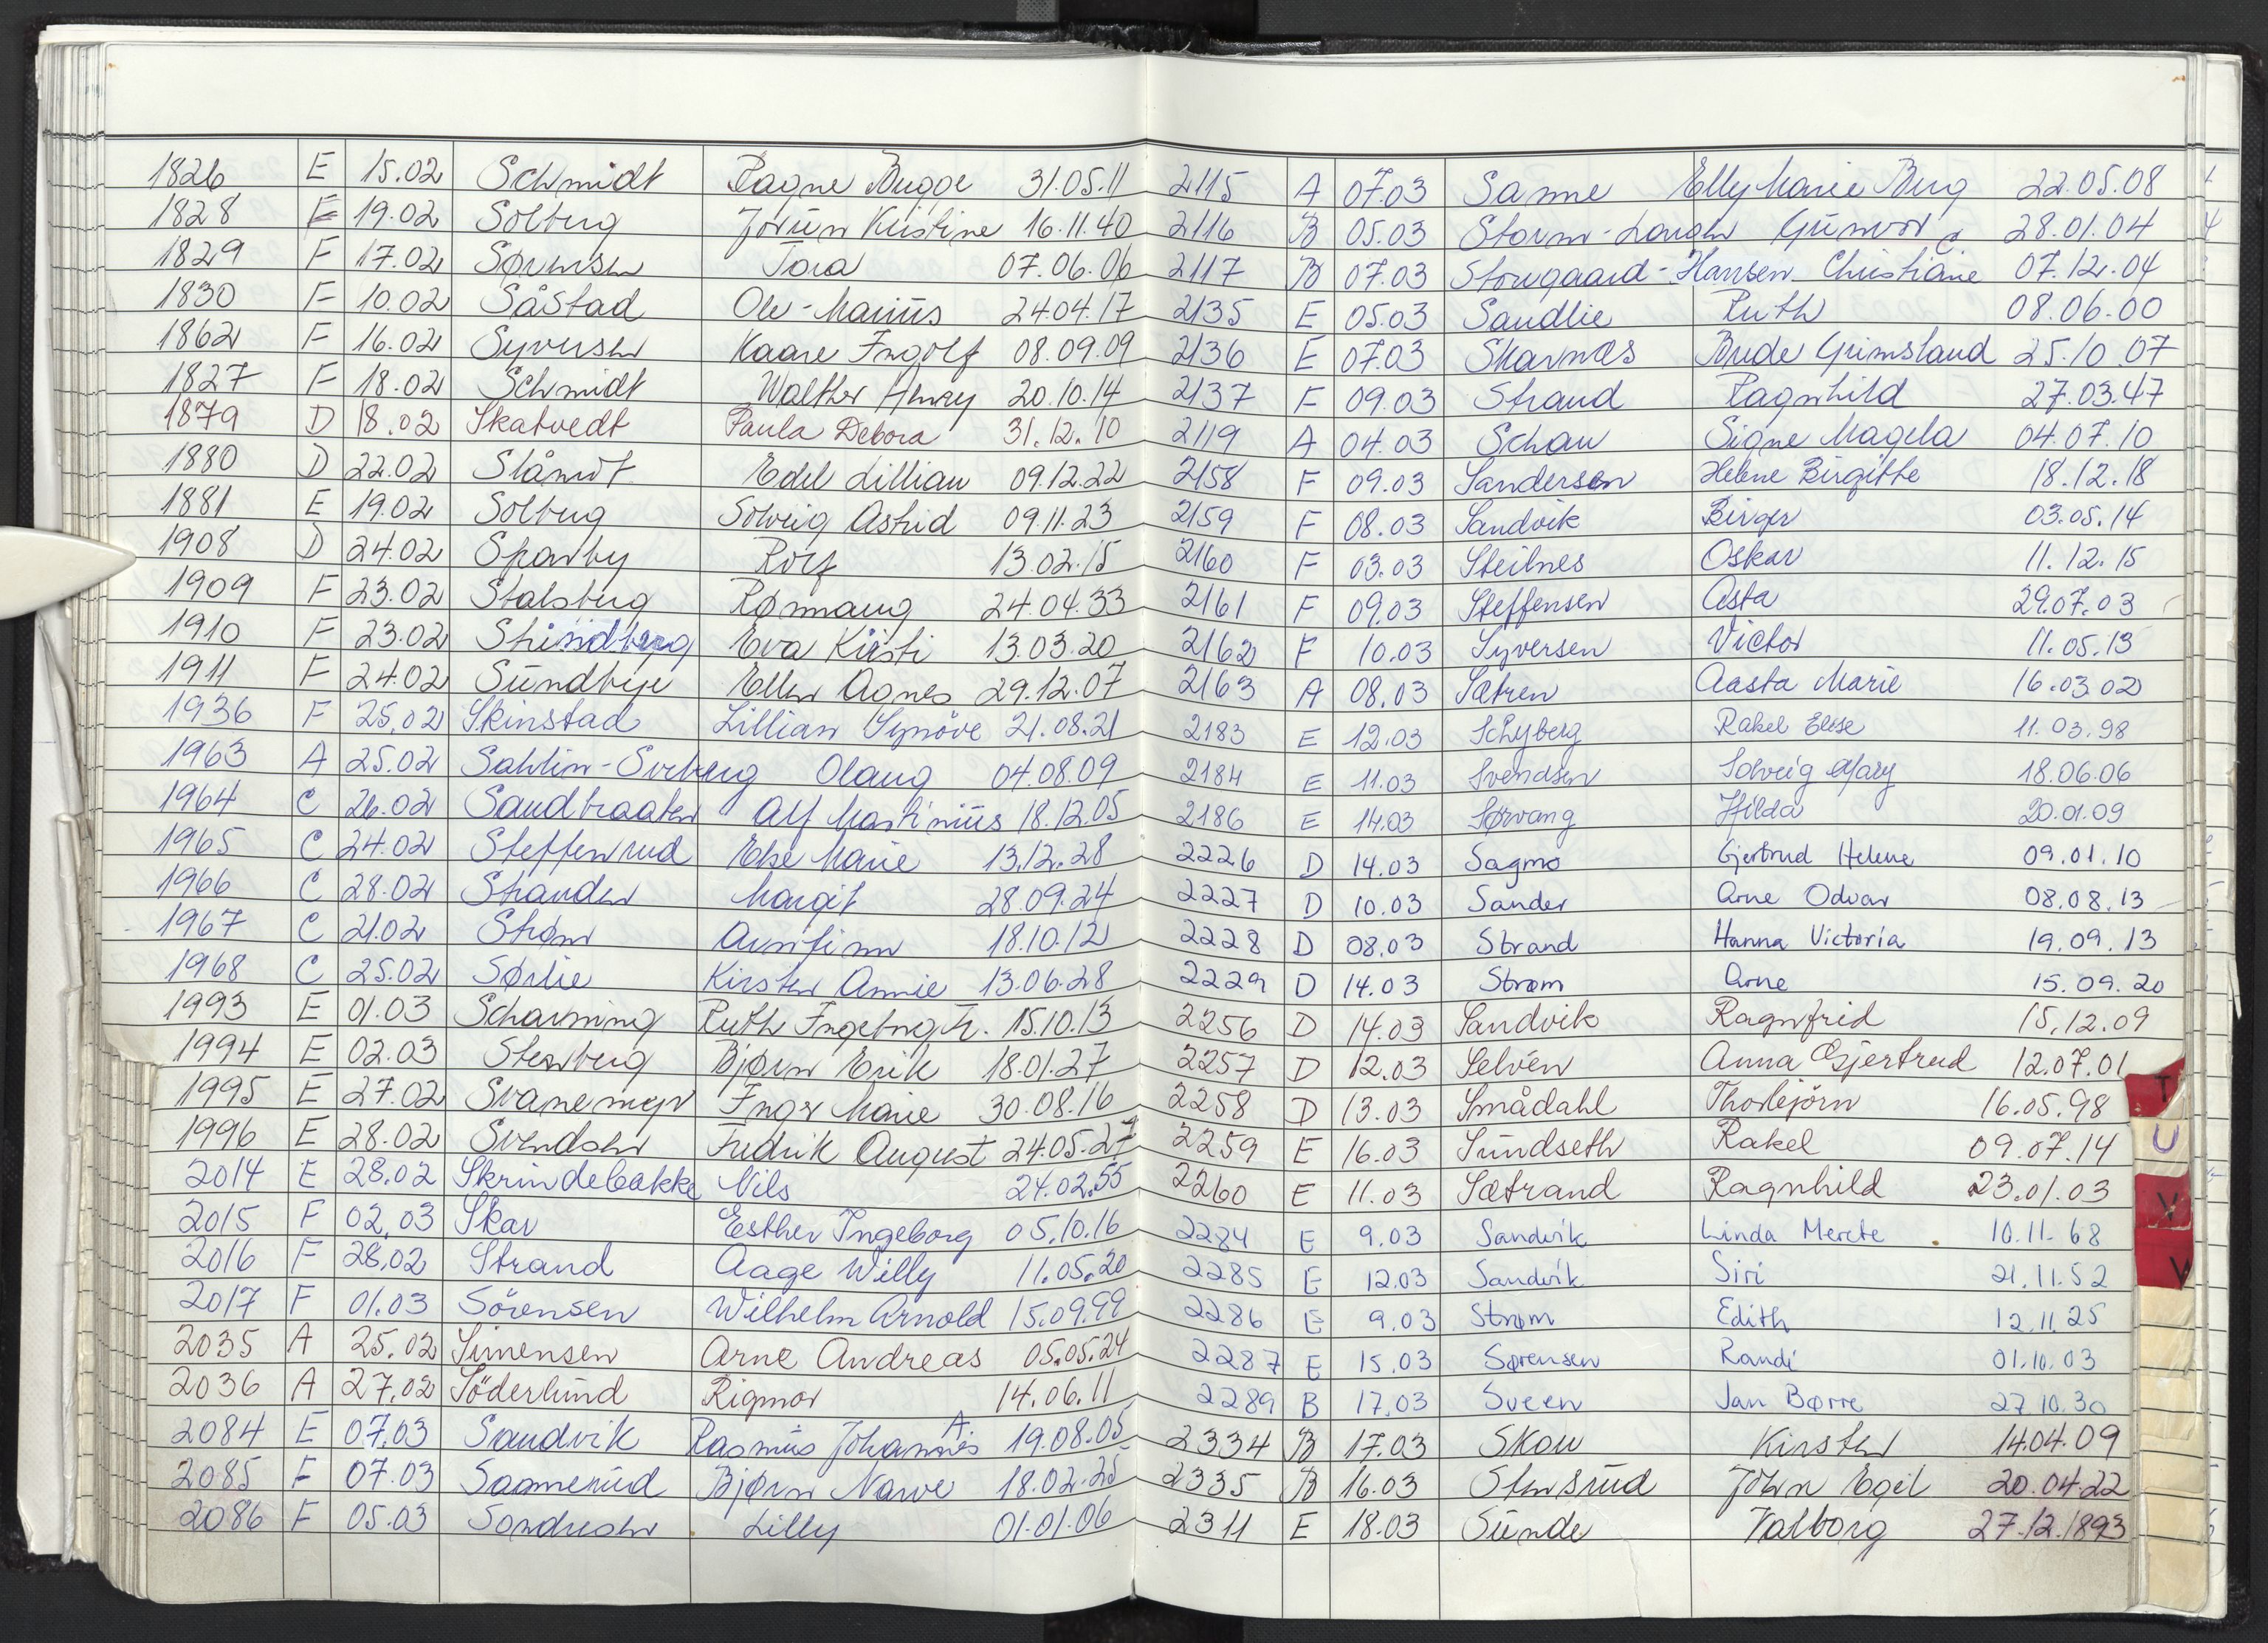 1826 E 15.02 Schmidt Ragne Bugge 31.05.11
1828 F 19.02 Solberg Jorun Kristine 16.11.40
1829 F 17.02 Sørensen Tora 07.06.06
1830 F 10.02 Såstad Ole-Marius 24.04.17
1862 F 16.02 Syversen Kaare Ingolf 08.09.09
1827 F 18.02 Schmidt Walther Henry 20.10.14
1879 D 18.02 Skatvedt Paula Debora 31.12.10
1880 D 22.02 Slåmot Edel Lillian 09.12.22
1881 E 19.02 Solberg Solveig Astrid 09.11.23
1908 D 24.02 Sparby Rolf 13.02.15
1909 F 23.02 Stalsberg Rømaug 24.04.33
1910 F 23.02 Strindberg Eva Kirsti 13.03.20
1911 F 24.02 Sundbye Ellen Agnes 29.12.07
1936 F 25.02 Skinstad Lillian Synöve 21.08.21
1963 A 25.02 Sahlin-Sveberg Olaug 04.08.09
1964 C 26.02 Sandbraaten Alf Martinius 18.12.05
1965 C 24.02 Steffenrud Else Marie 13.12.28
1966 C 28.02 Stranden Margit 28.09.24
1967 C 21.02 Strøm Arnfinn 18.10.12
1968 C 25.02 Sørlie Kirsten Annie 13.06.28
1993 E 01.03 Scharning Ruth Ingebrigh. 15.10.13
1994 E 02.03 Stenberg Bjørn Erik 18.01.27
1995 E 27.02 Svanemyr Inger Marie 30.08.16
1996 E 28.02 Svendsen Fredrik August 24.05.27
2014 E 28.02 Skrindebakke Nils 24.02.55
2015 F 02.03 Skar Esther Ingeborg 05.10.16
2016 F 28.02 Strand Aage Willy 11.05.20
2017 F 01.03 Sörensen Wilhelm Arnold 15.09.99
2035 A 25.02 Simensen Arne Andreas 05.05.24
2036 A 27.02 Söderlund Rigmor 14.06.11
2084 E 07.03 Sandvik Rasmus Johannes A. 19.08.05
2085 F 07.03 Saamerud Bjørn Narve 18.02.25
2086 F 05.03 Sondresen Lilly 01.01.06
2115 A 07.03 Sanne Elly Marie Berg 22.05.08
2116 B 05.03 Storm-Larsen Gunvor 28.01.04
2117 B 07.03 Storgaard-Hansen Christiane C. 07.12.04
2135 E 05.03 Sandlie Ruth 08.06.00
2136 E 07.03 Skarnæs Bude Grimsland 25.10.07
2137 F 09.03 Strand Ragnhild 27.03.47
2119 A 04.03 Schau Signe Magela 04.07.10
2158 F 09.03 Sandersen Helene Birgitte 18.12.18
2159 F 08.03 Sandvik Birger 03.05.14
2160 F 03.03 Steilnes Oskar 11.12.15
2161 F 09.03 Steffensen Asta 29.07.03
2162 F 10.03 Syversen Victor 11.05.13
2163 A 08.03 Sætren Aasta Marie 16.03.02
2183 E 12.03 Schyberg Rakel Elise 11.03.98
2184 E 11.03 Svendsen Solveig Mary 18.06.06
2186 E 14.03 Sørvang Hilda 20.01.09
2226 D 14.03 Sagmo Gjertrud Helene 09.01.10
2227 D 10.03 Sander Arne Odvar 08.08.13
2228 D 08.03 Strand Hanna Victoria 19.09.13
2229 D 14.03 Strøm Arne 15.09.20
2256 D 14.03 Sandvik Ragnfrid 15.12.09
2257 D 12.03 Selvén Anna Gjertrud 12.07.01
2258 D 13.03 Smådahl Thorbjörn 16.05.98
2259 E 16.03 Sundseth Rakel 09.07.14
2260 E 11.03 Sætrand Ragnhild 23.01.03
2284 E 9.03 Sandvik Linda Merete 10.11.68
2285 E 12.03 Sandvik Siri 21.11.52
2286 E 9.03 Strøm Edith 12.11.25
2287 E 15.03 Sørensen Randi 01.10.03
2289 B 17.03 Sveen Jan Børre 27.10.30
2334 B 17.03 Skou Kirsten 14.04.09
2335 B 16.03 Stensrud John Egil 20.04.22
2311 E 18.03 Sunde Valborg 27.12.1893
T
U
V